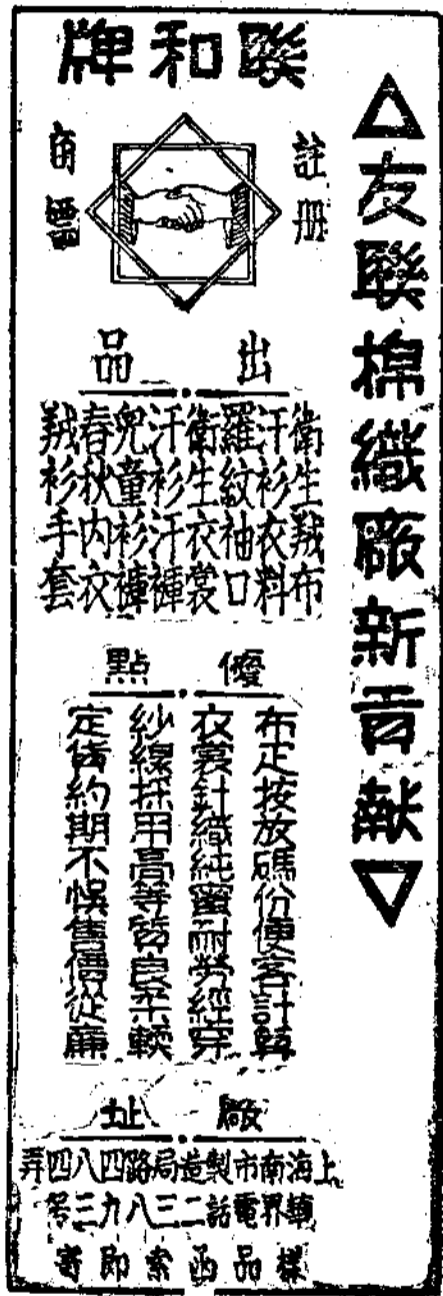 △友聯棉織廠新貢献▽
聯和牌
註冊
商標
出品
衛生羢布
汗衫衣料
羅紋袖口
衛生衣裳
汗衫汗褲
兒童衫褲
春秋内衣
羢衫手套
優點
布疋按放碼份便客計算
衣裳針織純蜜耐勞經穿
紗線採用高等質良柔輭
定貨約期不悞售價從廉
廠址
上海南市製造局路四八四弄
界電話二三八九三号
樣品函索即寄